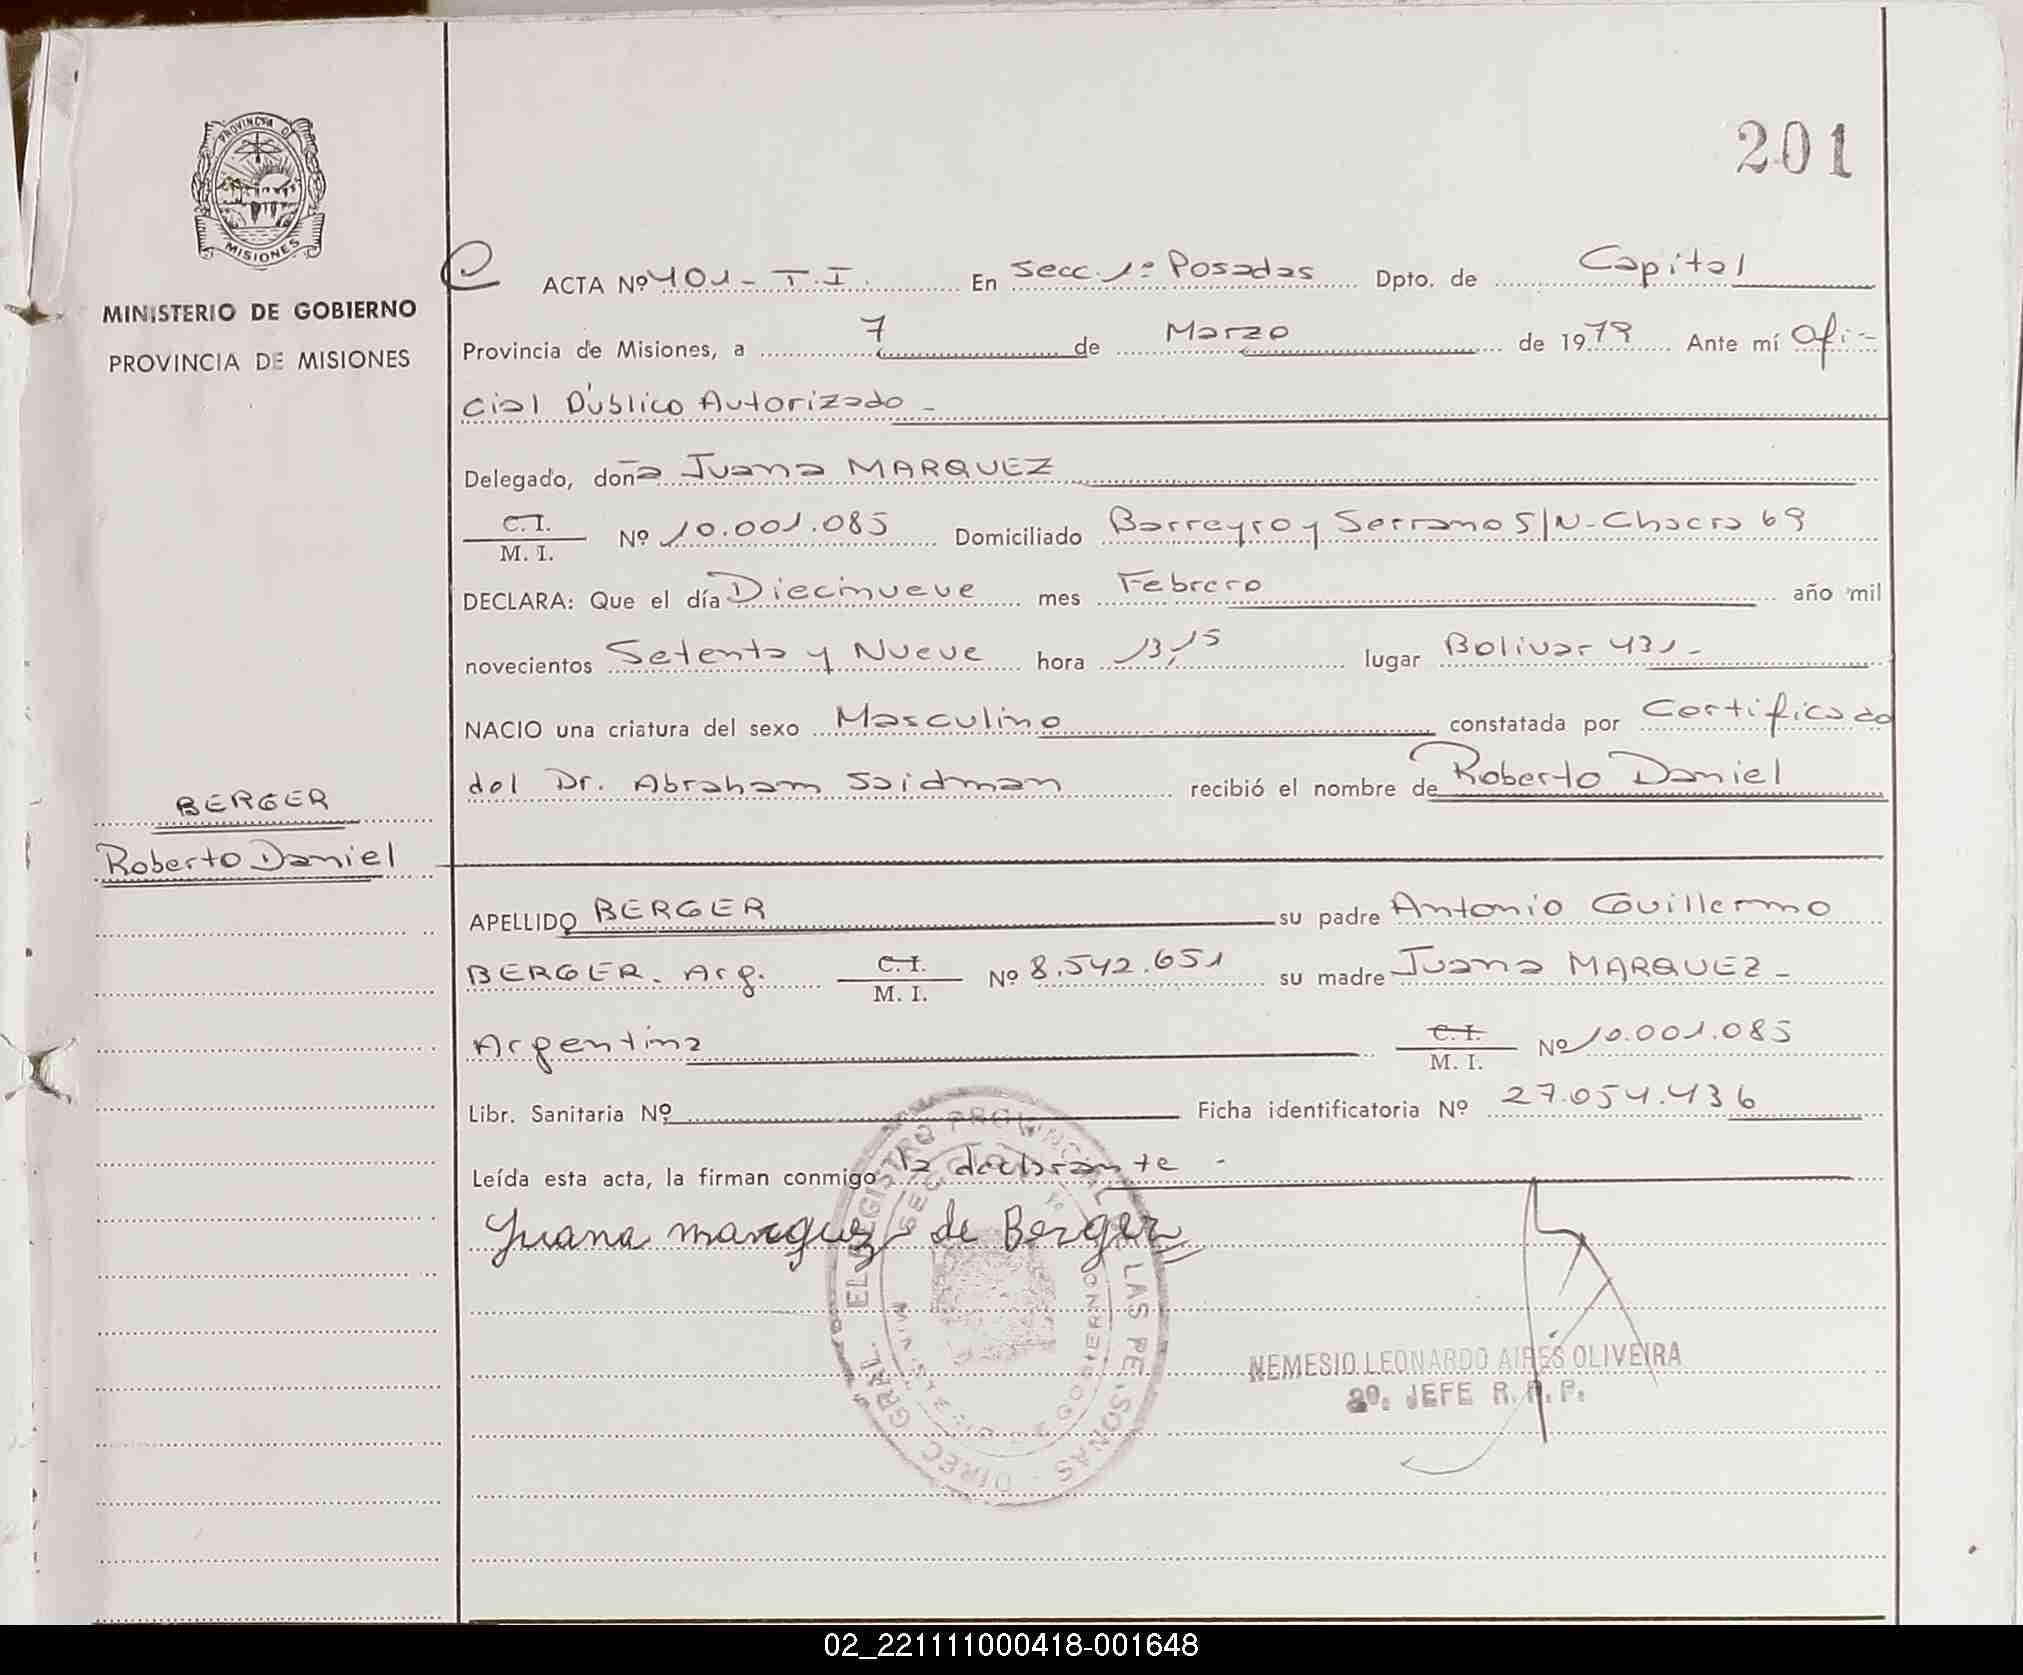 PROVINCIA D
MISIONES
MINISTERIO DE GOBIERNO
PROVINCIA DE MISIONES
BERGER
Roberto Daniel
201
ACTA Nº 401 - T.I. En Secc. 1º Posadas Dpto. de Capital
Provincia de Misiones, a 7 de Marzo de 1979 Ante mí Ofi-
cial Público Autorizado -
Delegado, doña Juana MARQUEZ
C.I. M. I. Nº 10.001.085 Domiciliado Barreyro y Serrano S/N - Chacra 69
DECLARA: Que el día Diecinueve mes Febrero año mil
novecientos Setenta y Nueve hora 13,15 lugar Bolivar 431 -
NACIO una criatura del sexo Masculino constatada por Certificado
del Dr. Abraham Saidman recibió el nombre de Roberto Daniel
APELLIDO BERGER su padre Antonio Guillermo
BERGER. Arg. C.I. M. I. Nº 8.542.651 su madre Juana MARQUEZ -
Argentina C.I. M. I. Nº 10.001.085
Libr. Sanitaria Nº Ficha identificatoria Nº 27.054.436
Leída esta acta, la firman conmigo la declarante -
Juana marquez de Berger
DIREC. GRAL. EL REGISTRO PROVINCIAL LAS PERSONAS
NEMESIO LEONARDO AIRES OLIVEIRA
2º. JEFE R. P. P.
02_221111000418-001648